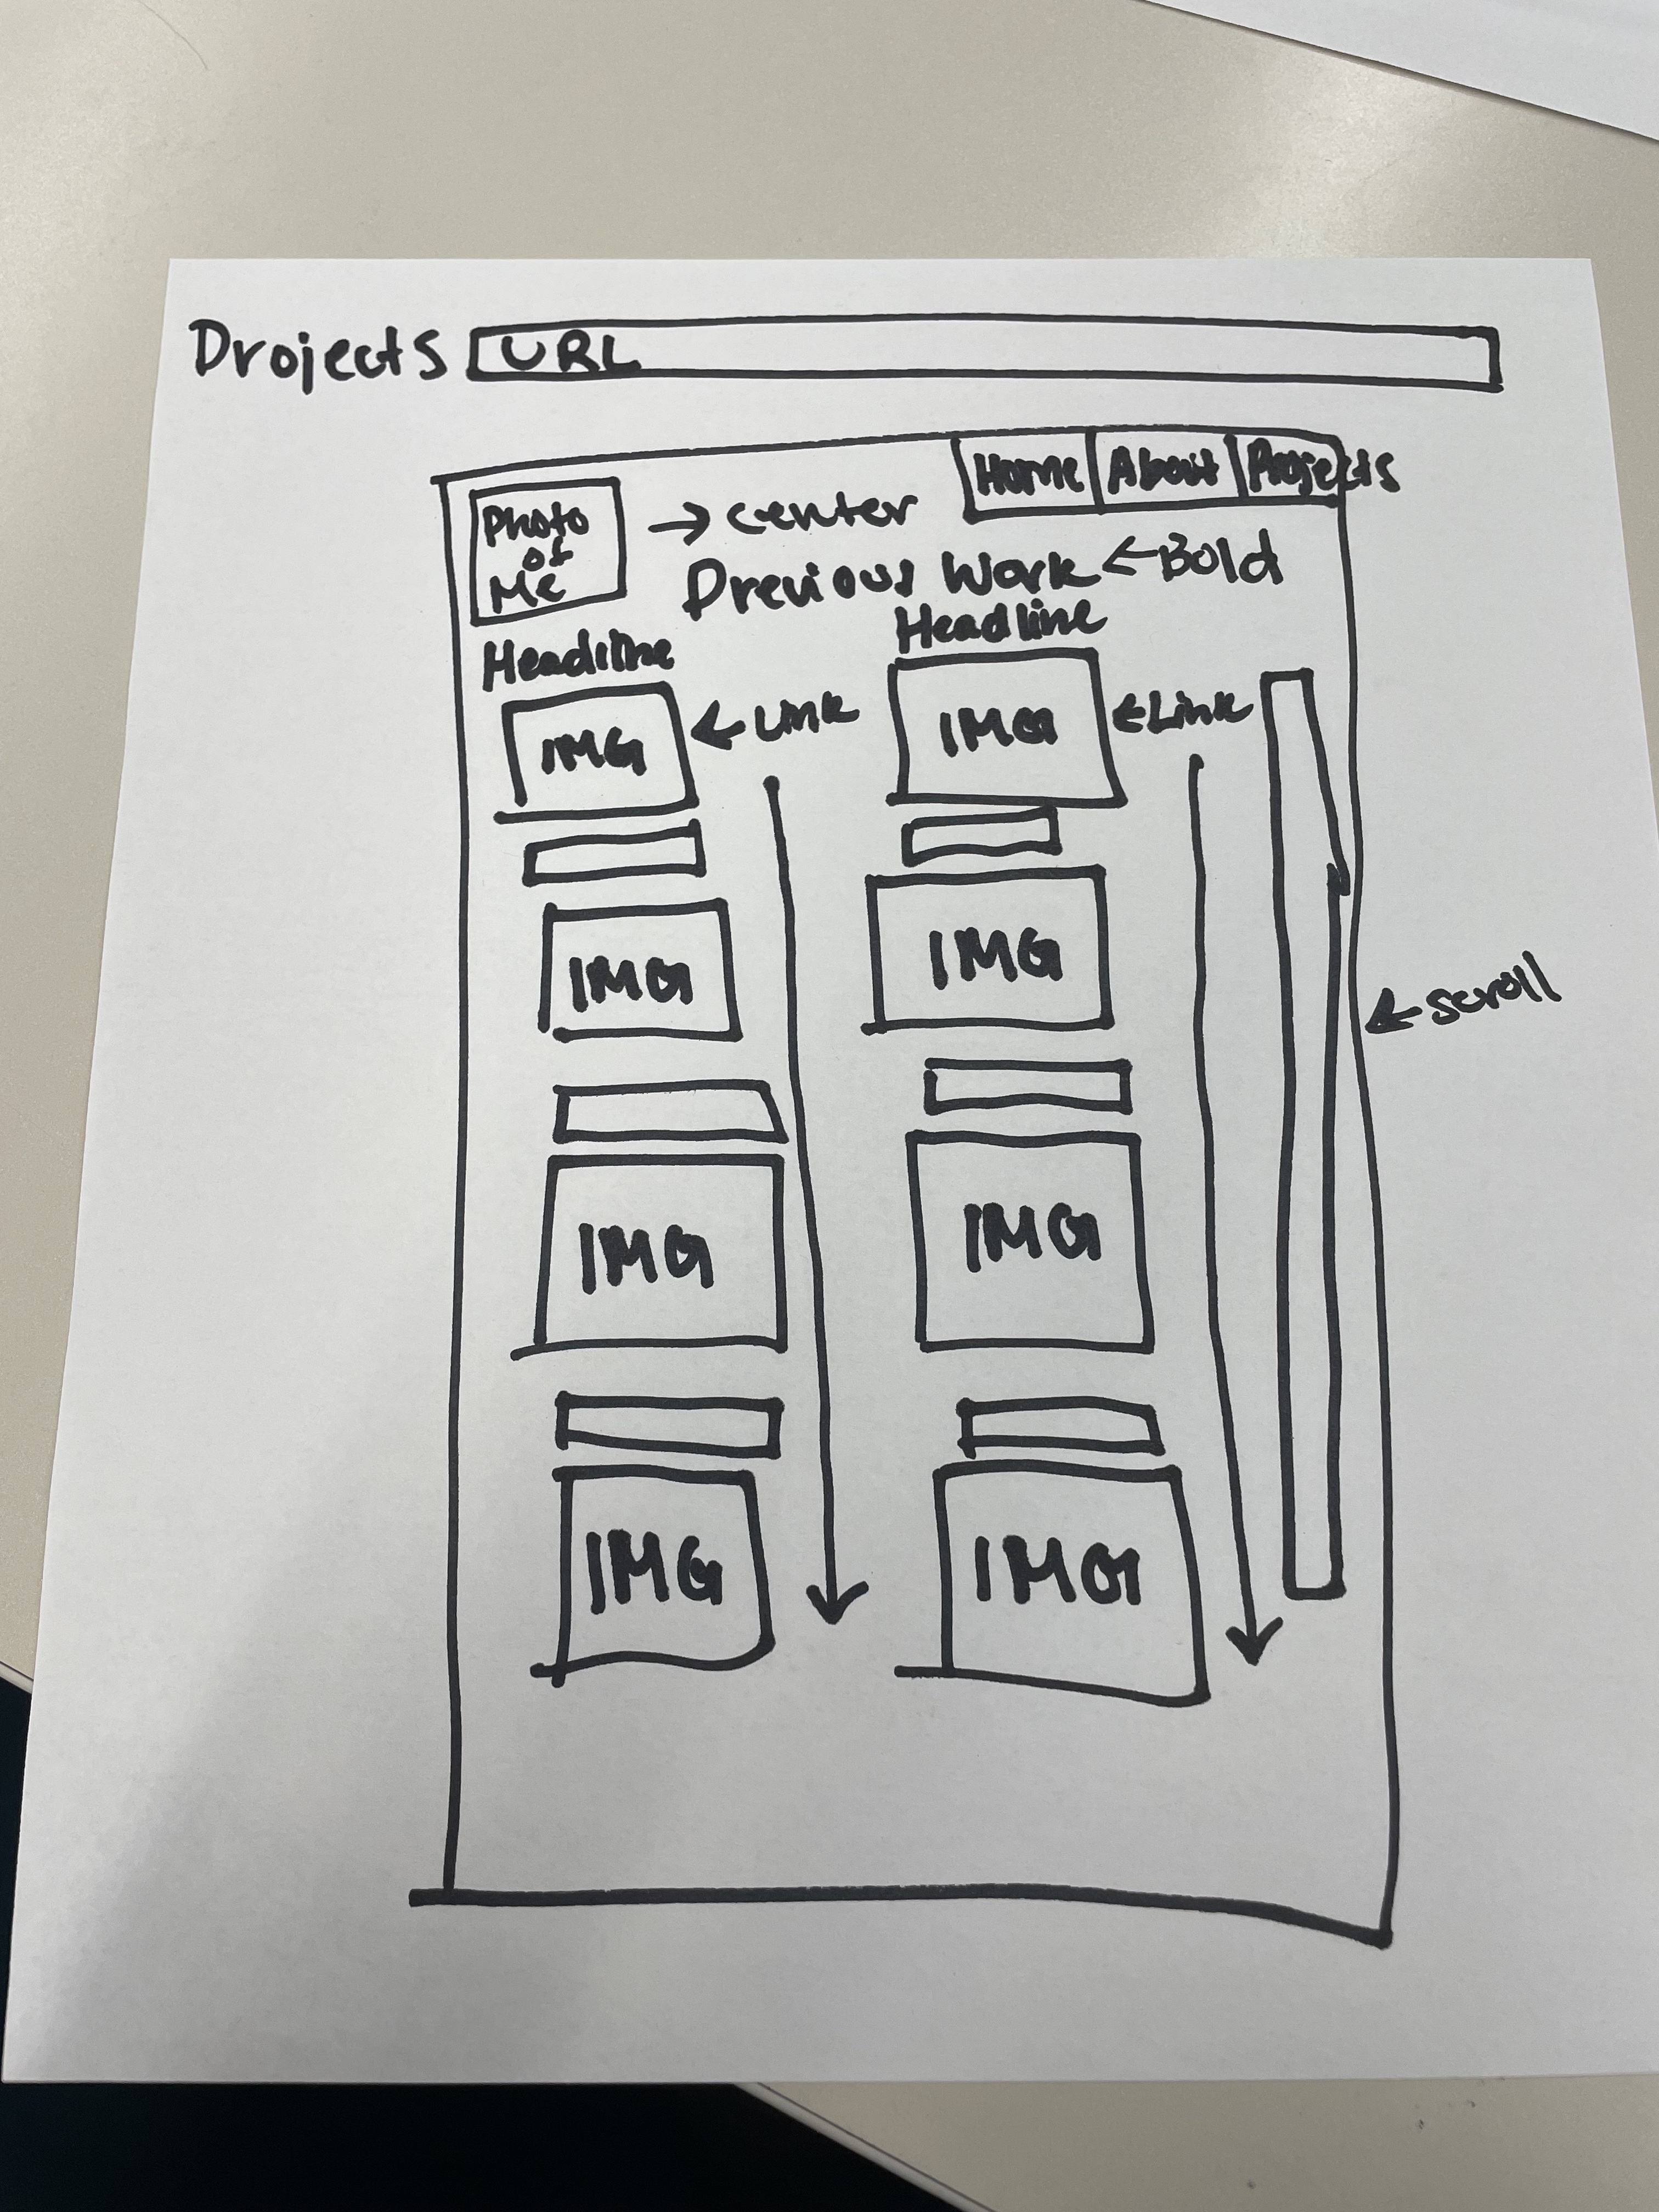 Projects URL
Home About Projects
Photo
of
Me
→ center
Previous Work ← Bold
Headline
Headline
IMG ← Link
IMG ← Link
IMG
IMG
← scroll
IMG
IMG
IMG
IMG